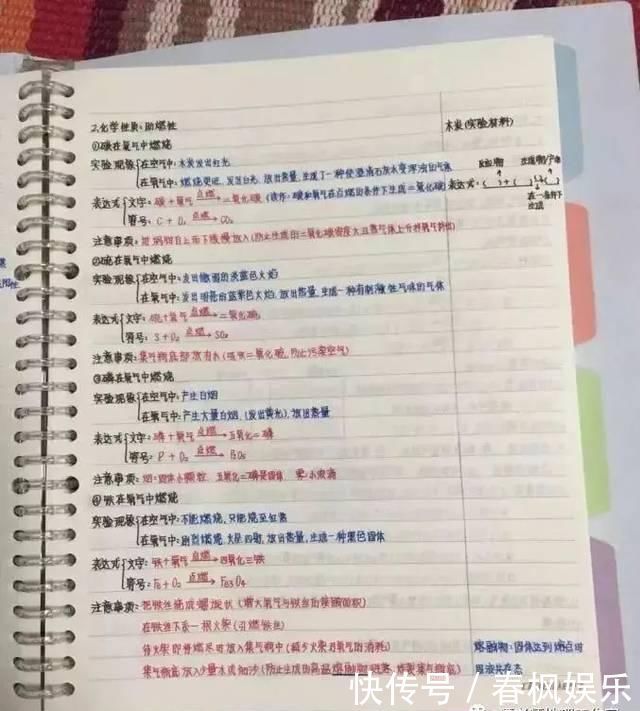 2.化学性质:助燃性
木炭(实验材料)
①碳在氧气中燃烧
实验现象 在空气中:木炭发出红光
反应物 生成物/产物
在氧气中:燃烧更旺,发出白光,放出热量,生成了一种使澄清石灰水变浑浊的气体
表达式:( )+( ) ( )
在一条件下
生成
表达式 文字:碳+氧气 点燃→ 二氧化碳 (读作:碳和氧气在点燃的条件下生成二氧化碳)
符号:C + O₂ 点燃→ CO₂
注意事项:
②硫在氧气中燃烧
实验现象 在空气中:发出微弱的淡蓝色火焰
在氧气中:发出明亮的蓝紫色火焰,放出热量,生成一种有刺激性气味的气体
表达式 文字:硫+氧气 点燃→ 二氧化硫
符号:S + O₂ 点燃→ SO₂
注意事项:集气瓶底部放有水(吸收二氧化硫,防止污染空气)
③磷在氧气中燃烧
实验现象 在空气中:产生白烟
在氧气中:产生大量白烟,(发出黄光),放出热量
表达式 文字:磷+氧气 点燃→ 五氧化二磷
符号:P + O₂ 点燃→ P₂O₅
注意事项:烟:固体小颗粒 五氧化二磷是固体 雾:小液滴
④铁在氧气中燃烧
实验现象 在空气中:不能燃烧,只能烧至红热
在氧气中:剧烈燃烧,火星四射,放出热量,生成一种黑色固体
表达式 文字:铁+氧气 点燃→ 四氧化三铁
符号:Fe + O₂ 点燃→ Fe₃O₄
注意事项:把铁丝绕成螺旋状(增大氧气与铁丝的接触面积)
在铁丝下系一根火柴(引燃铁丝)
待火柴即将燃尽时放入集气瓶中(减少火柴对氧气的消耗)
熔融物:固体达到熔点时
集气瓶底放入少量水或细沙(防止生成的高温熔融物溅落,炸裂集气瓶底)
快传号/春枫娱乐